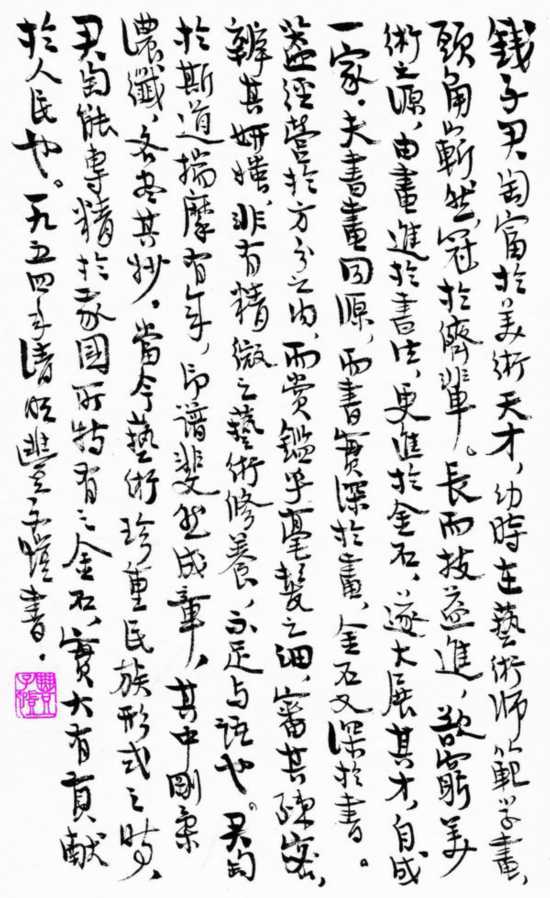 錢子君匋富於美術天才，幼時在藝術師範学畫，
頭角嶄然，冠於儕輩。長而技益進，欲窮美
術之源，由畫進於書法，更進於金石，遂大展其才，自成
一家。夫書畫同源，而書實深於畫，金石又深於書。
蓋經營於方寸之内，而賞鑑乎毫髮之細，審其疎密，
辨其妍媸，非有精微之藝術修養，不足与語也。君匋
於斯道揣摩有年，印譜斐然成章，其中剛柔
濃纖，各尽其妙。當今藝術珍重民族形式之時，
君匋能專精於我國所特有之金石，實大有貢献
於人民也。一九五四年清明豐子愷書。
豐子愷